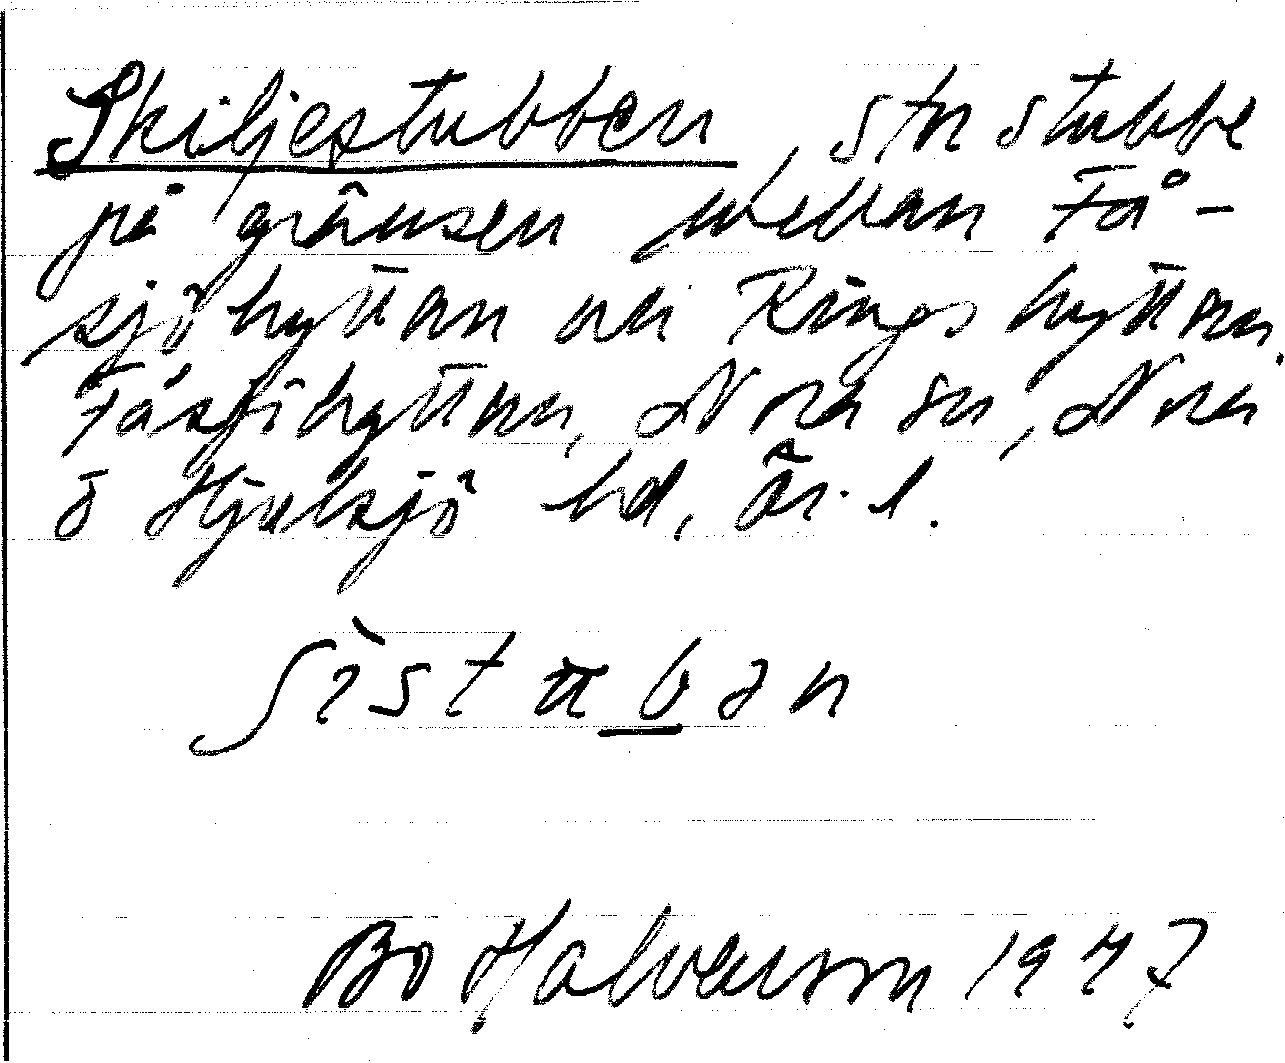 Skiljestubben, stor stubbe
på gränsen mellan Få-
sjöhyttan och Ringshyttan.
Fåsjöhyttan, Nora sn, Nora
o Hjulsjö hd, Ör. l.
Bo Halvarson 1947